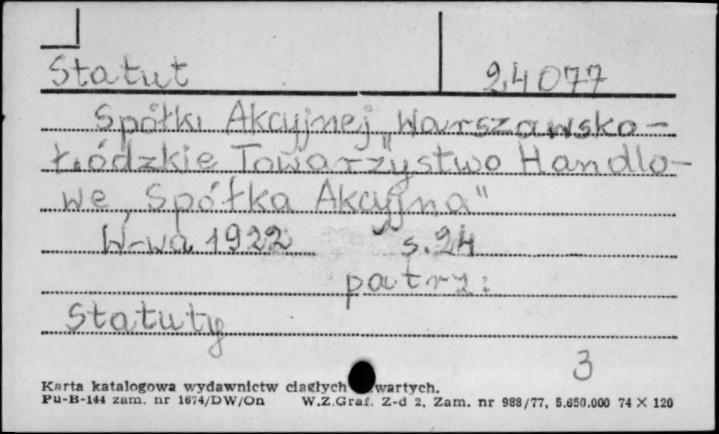 Statut 24077
Spółki Akcyjnej „Warszawsko-
Łódzkie Towarzystwo Handlo-
we, Spółka Akcyjna"
W-wa 1922 s. 24
patrz:
Statuty
3
Karta katalogowa wydawnictw ciągłych wartych.
Pu-B-144 zam. nr 1674/DW/On W.Z.Graf. Z-d 2, Zam. nr 988/77, 5.650.000 74 X 120